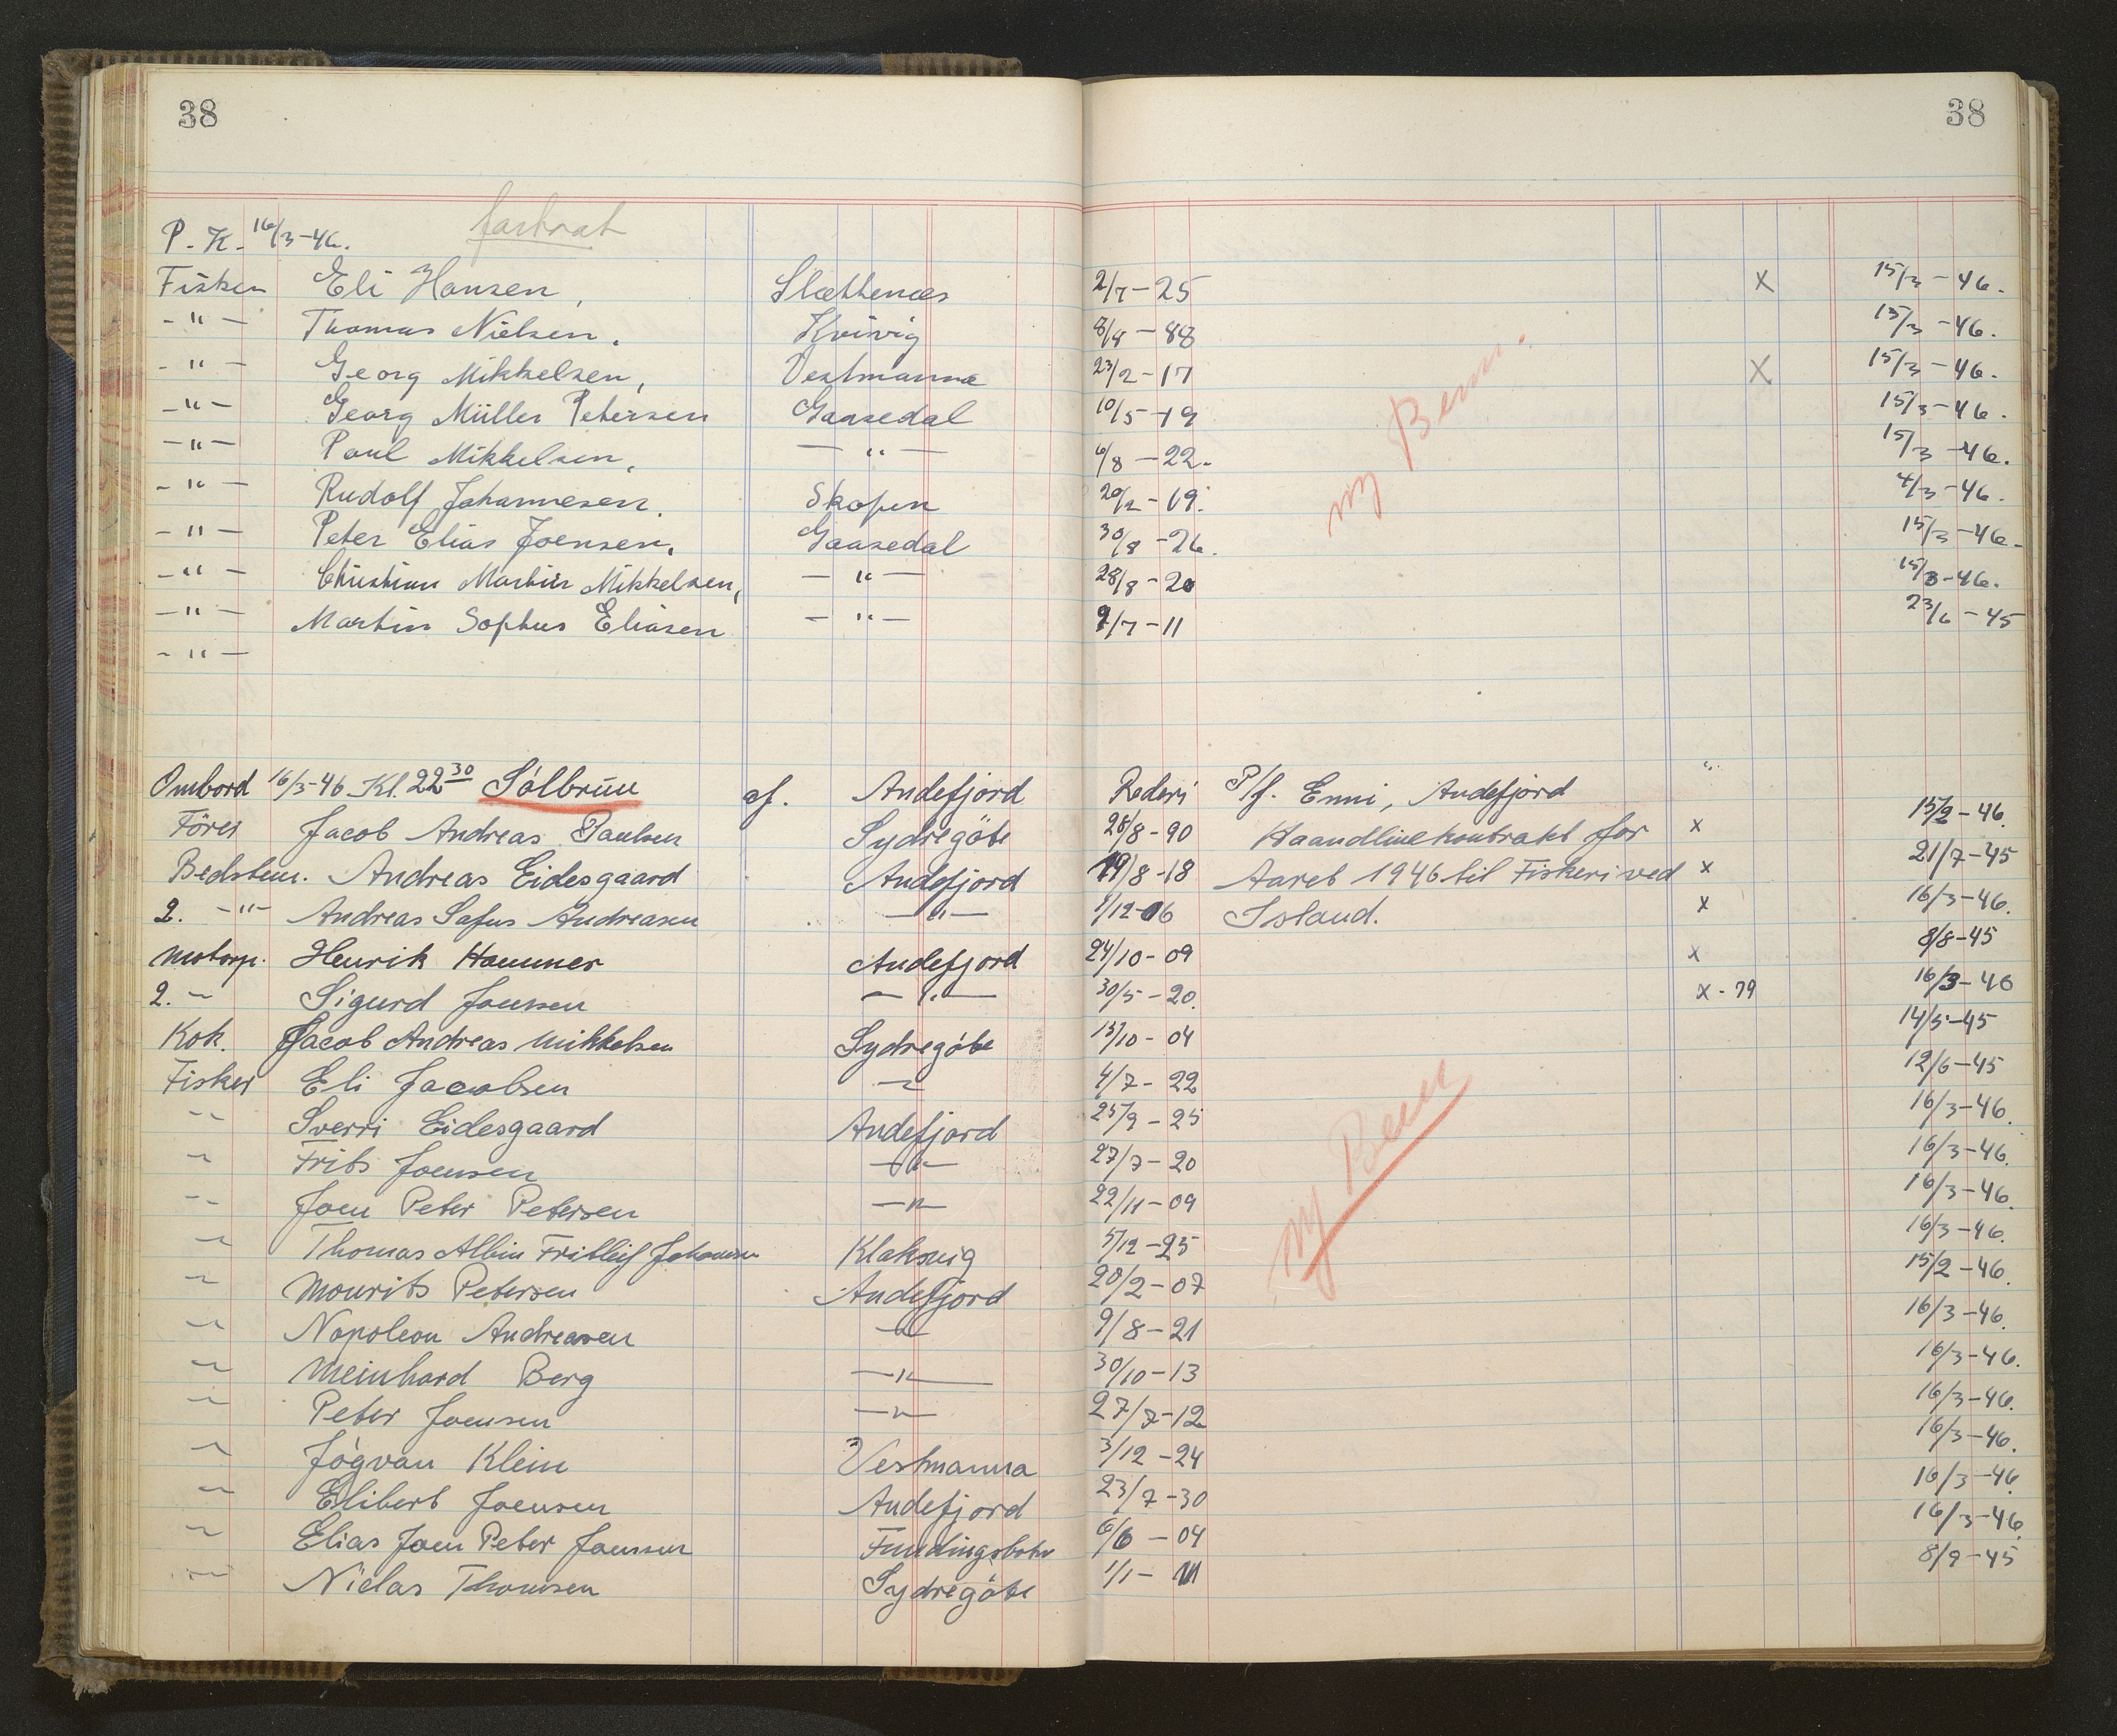 38 38
P. K. 16/3-46. fartsat
Fisker Eli Hansen, Slættenæs 2/7-25 X 15/3-46.
-"- Thomas Nielsen. Kvivig 8/8-88 15/3-46.
-"- Georg Mikkelsen, Vestmanna 23/2-17 X 15/3-46.
-"- Georg Müller Petersen Gaasedal 10/5-19 15/3-46.
-"- Poul Mikkelsen, -"- 6/8-22. 15/3-46.
-"- Rudolf Johannesen. Skopen 20/2-19. 4/3-46.
-"- Peter Elias Joensen. Gaasedal 30/8-26. 15/3-46.
-"- Christian Martin Mikkelsen, -"- 28/8-20 15/3-46.
-"- Martin Sophus Eliasen -"- 9/7-11 23/6-45
-"-
ny Bem.
Ombord 16/3-46 Kl. 22 30 Sólbrún af. Andefjord Rederi P/f. Enni, Andefjord "
Förer Jacob Andreas Paulsen Sydregöte 28/8-90 Haandlinekontrakt for x 15/2-46.
Bedstem. Andreas Eidesgaard Andefjord 19/8-18 Aaret 1946 til Fiskeri ved x 21/7-45
2. -"- Andreas Safus Andreasen -"- 1/12-06 Island. x 16/3-46.
Motorp. Henrik Hammer Andefjord 24/10-09 x 8/8-45
2. -"- Sigurd Joensen -"- 30/5-20. x - 79 16/3-46
Kok. Jacob Andreas Mikkelsen Sydregöte 15/10-04 14/5-45
Fisker Eli Jacobsen -"- 4/7-22 12/6-45
-"- Sverri Eidesgaard Andefjord 25/9-25 16/3-46.
-"- Frits Joensen -"- 27/7-20 16/3-46.
-"- Joen Peter Petersen -"- 22/11-09 16/3-46.
-"- Thomas Albin Fritleif Johansen Klaksvig 5/12-25 16/3-46.
-"- Mourits Petersen Andefjord 20/2-07 15/2-46.
-"- Napoleon Andreasen -"- 9/8-21 16/3-46.
-"- Meinhard Berg -"- 30/10-13 16/3-46.
-"- Peter Joensen -"- 27/7-12 16/3-46.
-"- Jógvan Klein Vestmanna 3/12-24 16/3-46.
-"- Elibert Joensen Andefjord 23/7-30 16/3-46
-"- Elias Joen Peter Joensen Fundingsbotn 6/6-04 16/3-46.
-"- Niclas Thomsen Sydregöte 1/1-11 8/9-45
ny Bem